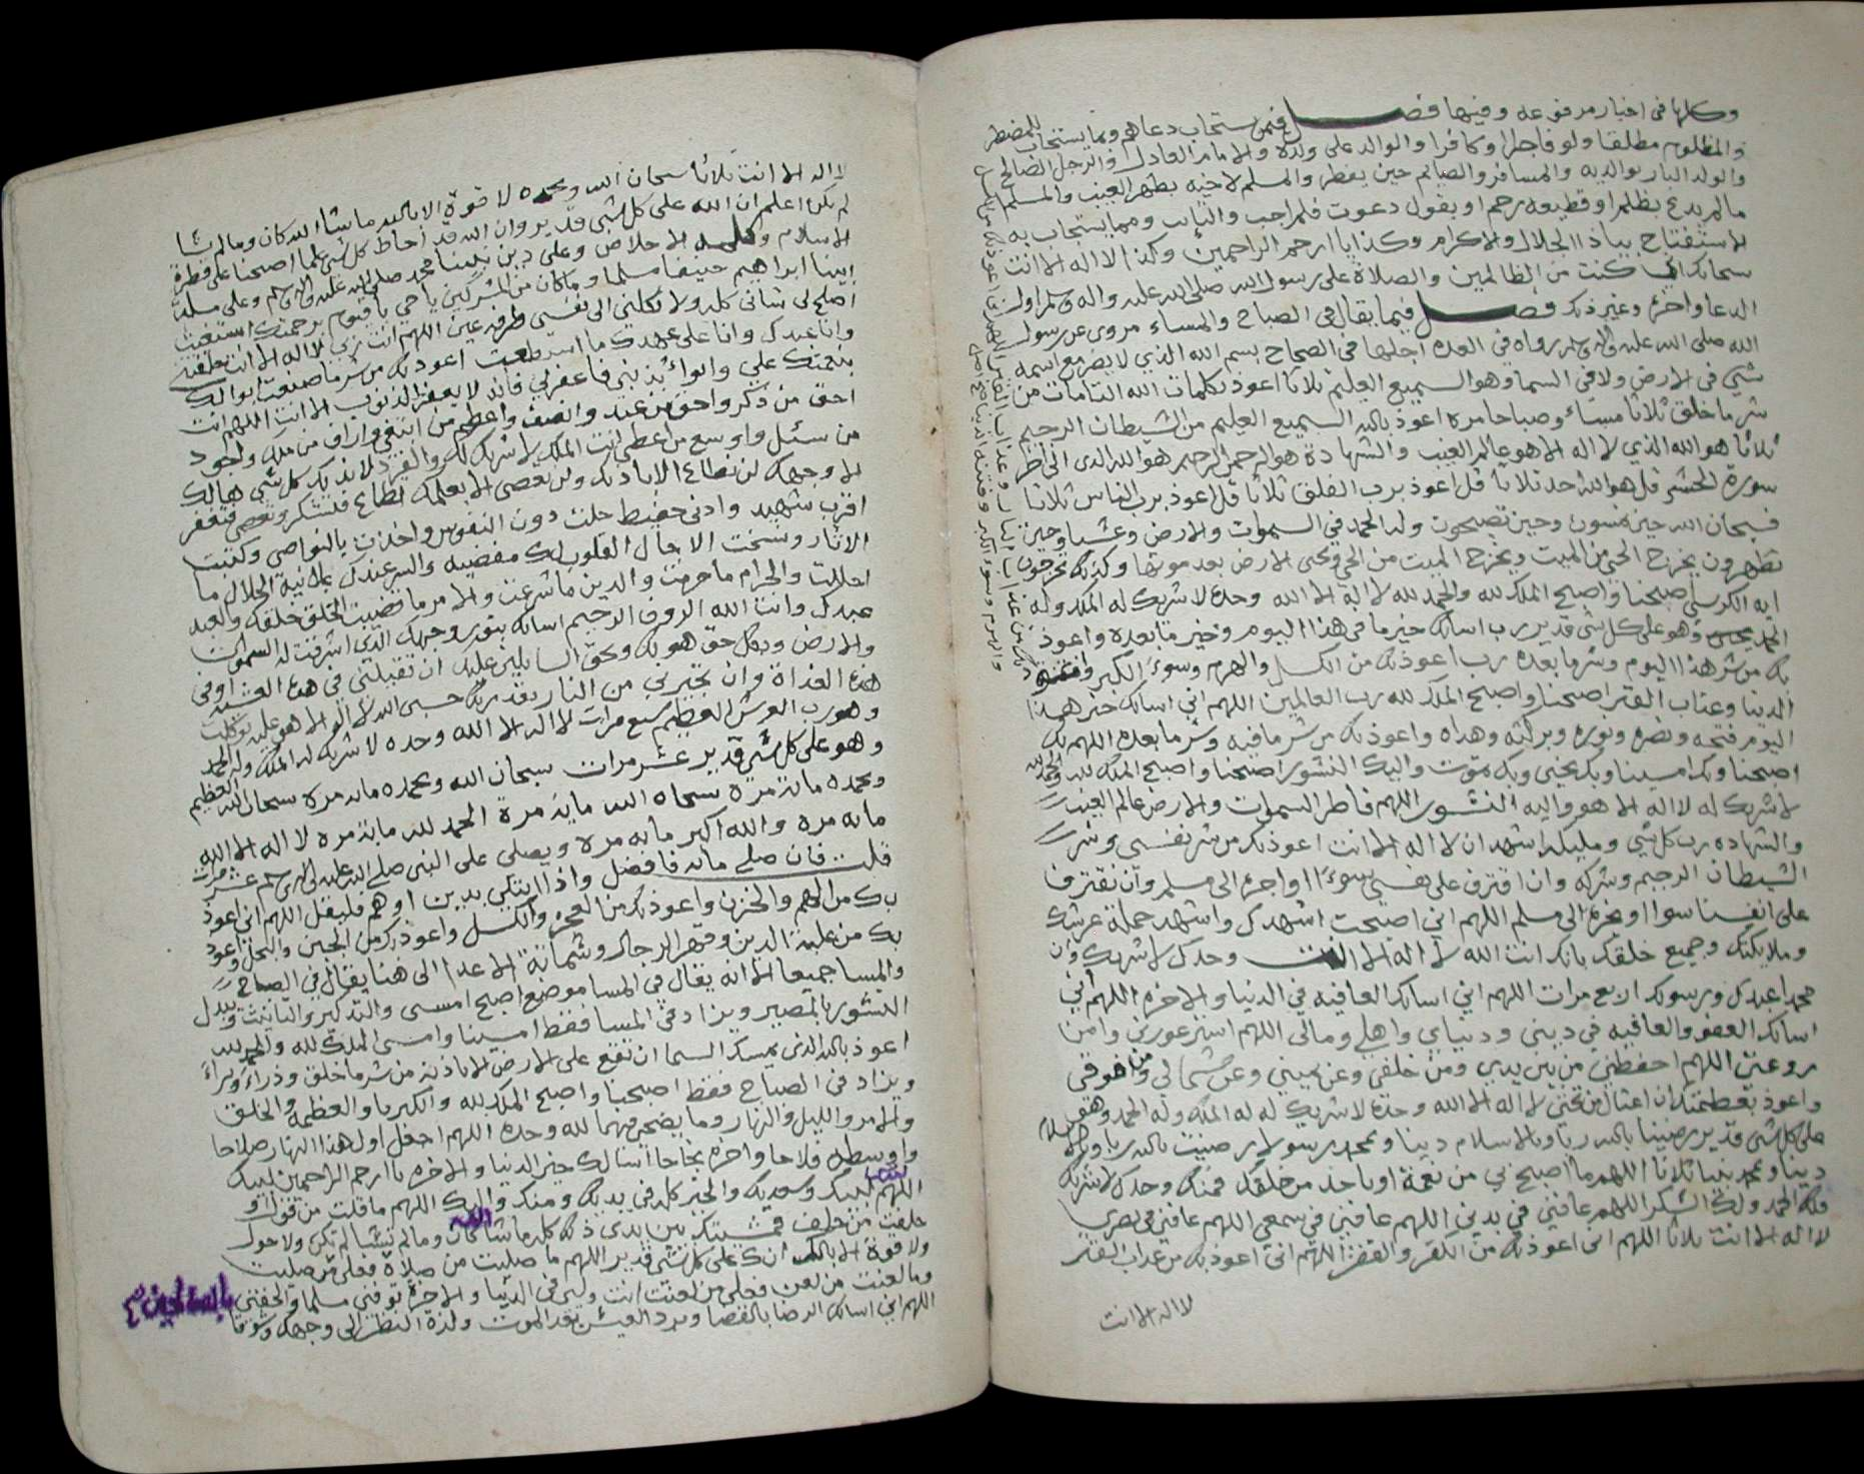 وكلها في اخبار مرفوعه وفيها فصل فيمن يستجاب دعاهم وبما يستجاب المضطر
والمظلوم مطلقا ولو فاجرا او كافرا والوالد على ولده والامام العادل والرجل الصالح
والولد البار بوالديه والمسافر والصائم حين يفطر والمسلم لاخيه بظهر الغيب والمسلم
ما لم يدع بظلم او قطيعه رحم او يقول دعوت فلم اجب والتايب ومما يستجاب به
الاستفتاح بياذا الجلال والاكرام وكذا يا ارحم الراحمين وكذا لا اله الا انت
سبحانك اني كنت من الظالمين والصلاة على رسول الله صلى الله عليه واله وسلم اول
الدعا واخره وغير ذلك فصل فيما يقال في الصباح والمساء مروى عن رسول
الله صلى الله عليه واله وسلم رواه في العده اجلها في الصحاح بسم الله الذي لا يضر مع اسمه
شي في الارض ولا في السما وهو السميع العليم ثلاثا اعوذ بكلمات الله التامات من
شر ما خلق ثلاثا مساء وصباحا مره اعوذ بالله السميع العليم من الشيطان الرجيم
ثلاثا هو الله الذي لا اله الا هو عالم الغيب والشهادة هو الرحمن الرحيم هو الله الذي الى اخر
سورة الحشر قل هو الله احد ثلاثا قل اعوذ برب الفلق ثلاثا قل اعوذ برب الناس ثلاثا
فسبحان الله حين تمسون وحين تصبحون وله الحمد في السموات والارض وعشيا وحين
تظهرون يخرج الحي من الميت ويخرج الميت من الحي ويحيى الارض بعد موتها وكذلك تخرجون
ايه الكرسي اصبحنا واصبح الملك لله والحمد لله لا اله الا الله وحده لا شريك له له الملك وله
الحمد وهو على كل شي قدير رب اسالك خير ما في هذا اليوم وخير ما بعده واعوذ
بك من شر هذا اليوم وشر ما بعده رب اعوذ بك من الكسل والهرم وسوء الكبر وفتنة
الدنيا وعذاب القبر اصبحنا واصبح الملك لله رب العالمين اللهم اني اسالك خير هذا
اليوم فتحه ونصره ونوره وبركته وهداه واعوذ بك من شر ما فيه وشر ما بعده اللهم بك
اصبحنا وبك امسينا وبك نحيى وبك نموت واليك النشور اصبحنا واصبح الملك لله والحمد لله
لا شريك له لا اله الا هو واليه النشور اللهم فاطر السموات والارض عالم الغيب
والشهاده رب كل شي ومليكه اشهد ان لا اله الا انت اعوذ بك من شر نفسي وشر
الشيطان الرجيم وشركه وان اقترف على نفسي سوءا او اجره الى مسلم وان نقترف
على انفسنا سوا او نجره الى مسلم اللهم اني اصبحت اشهدك واشهد حملة عرشك
وملايكتك وجميع خلقك بانك انت الله لا اله الا انت وحدك لا شريك لك وان
محمدا عبدك ورسولك اربع مرات اللهم اني اسالك العافيه في الدنيا والاخره اللهم اني
اسالك العفو والعافيه في ديني ودنياي واهلي ومالي اللهم استر عورتي وامن
روعتي اللهم احفظني من بين يدي ومن خلفي وعن يميني وعن شمالي ومن فوقي
واعوذ بعظمتك ان اغتال من تحتي لا اله الا الله وحده لا شريك له له الملك وله الحمد وهو
على كل شي قدير رضينا بالله ربا وبالاسلام دينا وبمحمد رسولا رضيت بالله ربا وبالاسلام
دينا وبمحمد نبيا ثلاثا اللهم ما اصبح بي من نعمة او باحد من خلقك فمنك وحدك لا شريك لك
فلك الحمد ولك الشكر اللهم عافني في بدني اللهم عافني في سمعي اللهم عافني في بصري
لا اله الا انت ثلاثا اللهم اني اعوذ بك من الكفر والفقر اللهم اني اعوذ بك من عذاب القبر
لا اله الا انت
لا اله الا انت ثلاثا سبحان الله وبحمده لا قوة الا بالله ما شا الله كان وما لم يشا
لم يكن اعلم ان الله على كل شي قدير وان الله قد احاط بكل شي علما اصبحنا على فطرة
الاسلام وكلمة الاخلاص وعلى دين نبينا محمد صلى الله عليه واله وسلم وعلى ملة
ابينا ابراهيم حنيفا مسلما وما كان من المشركين يا حي يا قيوم برحمتك استغيث
اصلح لي شاني كله ولا تكلني الى نفسي طرفة عين اللهم انت ربي لا اله الا انت خلقتني
وانا عبدك وانا على عهدك ما استطعت اعوذ بك من شر ما صنعت ابوا لك
بنعمتك علي وابوا بذنبي فاغفر لي فانه لا يغفر الذنوب الا انت اللهم انت
احق من ذكر واحق من عبد وانصف واعظم من ابتغي واراف من ملك واجود
من سئل واوسع من اعطى انت الملك لا شريك لك والفرد لا ند لك كل شي هالك
الا وجهك لن تطاع الا باذنك ولن تعصى الا بعلمك تطاع فتشكر وتعصى فتغفر
اقرب شهيد وادنى حفيظ حلت دون النفوس واخذت بالنواصي وكتبت
الاثار ونسخت الاجال القلوب لك مفضيه والسر عندك علانية الحلال ما
احللت والحرام ما حرمت والدين ما شرعت والامر ما قضيت الخلق خلقك والعبد
عبدك وانت الله الروف الرحيم اسالك بنور وجهك الذي اشرقت له السموات
والارض وبكل حق هو لك وبحق السايلين عليك ان تقيلني في هذه العشية او في
هذه الغداة وان تجيرني من النار بقدرتك حسبي الله لا اله الا هو عليه توكلت
وهو رب العرش العظيم سبع مرات لا اله الا الله وحده لا شريك له له الملك وله الحمد
وهو على كل شي قدير عشر مرات سبحان الله وبحمده مايه مره سبحان الله العظيم
وبحمده مائة مرة سبحان الله ماية مرة الحمد لله ماية مره لا اله الا الله
مايه مره والله اكبر مايه مره ويصلي على النبي صلى الله عليه واله وسلم عشر مرات
قلت فان صلى مايه فافضل واذا ابتلي بدين او هم فليقل اللهم اني اعوذ
بك من الهم والحزن واعوذ بك من العجز والكسل واعوذ بك من الجبن والبخل واعوذ
بك من غلبة الدين وقهر الرجال وشماتة الاعدا الى هنا يقال في الصباح
والمسا جميعا الا انه يقال في المسا موضع اصبح امسى والتذكير والتانيث ويبدل
النشور بالمصير ويزاد في المسا فقط امسينا وامسى الملك لله والحمد لله
اعوذ بالله الذي يمسك السما ان تقع على الارض الا باذنه من شر ما خلق وذراء وبراء
ويزاد في الصباح فقط اصبحنا واصبح الملك لله والكبريا والعظمة والخلق
والامر والليل والنهار وما يضحى فيهما لله وحده اللهم اجعل اول هذا النهار صلاحا
واوسطه فلاحا واخره نجاحا اسالك خير الدنيا والاخره يا ارحم الراحمين لبيك
اللهم لبيك وسعديك والخير كله في يديك ومنك واليك اللهم ما قلت من قول او
حلفت من حلف فمشيتك بين يدى ذلك كله ما شئت كان وما لم تشا لم يكن ولا حول
ولا قوة الا بالله انك على كل شي قدير اللهم ما صليت من صلاة فعلى من صليت
وما لعنت من لعن فعلى من لعنت انت وليي في الدنيا والاخرة توفني مسلما والحقني بالصالحين
اللهم اني اسالك الرضا بالقضا وبرد العيش بعد الموت ولذة النظر الى وجهك وشوقا